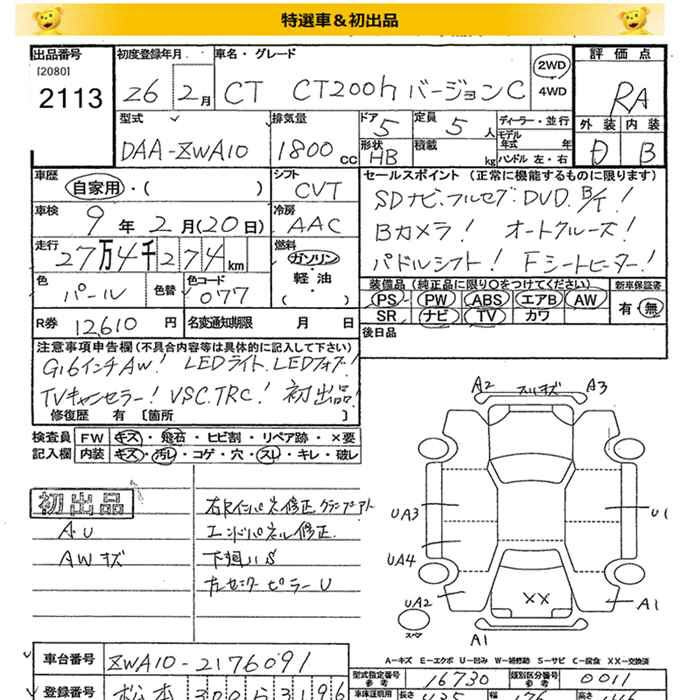 特選車&初出品
出品番号
[2080]
2113
初度登録年月
26 2月
車名・グレード
CT CT200h バージョンC
2WD
4WD
評価点
RA
外装 内装
D B
型式
DAA-ZWA10
排気量
1800cc
ドア
5
形状
HB
定員
5人
積載
kg
ディーラー・並行
モデル年式 年
ハンドル 左・右
車歴
自家用・( )
シフト
CVT
セールスポイント (正常に機能するものに限ります)
SDナビ.フルセグ.DVD.B/T!
Bカメラ! オートクルーズ!
パドルシフト! Fシートヒーター!
車検
9年2月(20日)
冷房
AAC
走行
27万4千274km
燃料
ガソリン・軽油
( )
色
パール
色替
色コード
077
装備品 (純正品に限り○をつけてください)
PS PW ABS エアB AW
SR ナビ TV カワ
新車保証書
有・無
R券 12610円
名変通知期限 月 日
後日品
注意事項申告欄(不具合内容等は具体的に記入して下さい)
G16インチAW! LEDライト.LEDフォグ!
TVキャンセラー! VSC.TRC! 初出品!
修復歴 有 [箇所 ]
検査員記入欄
FW キズ・飛石・ヒビ割・リペア跡・×要
内装 キズ・汚レ・コゲ・穴・スレ・キレ・破レ
初出品
AU
AWキズ
右Rインパネ修正.クランプアト
エンドパネル修正.
下廻りS
センターピラーU
A2 キズ A3
UA3
UA4
UA2
U1
A1
A1
XX
スペア
A-キズ E-エクボ U-凹ミ W-補修跡 S-サビ C-腐食 XX-交換済
車台番号 ZWA10-2176091
登録番号 松本 300 3196
型式指定番号 参考
16730
類別区分番号 参考
0011
車庫証明用
長さ
幅
高さ